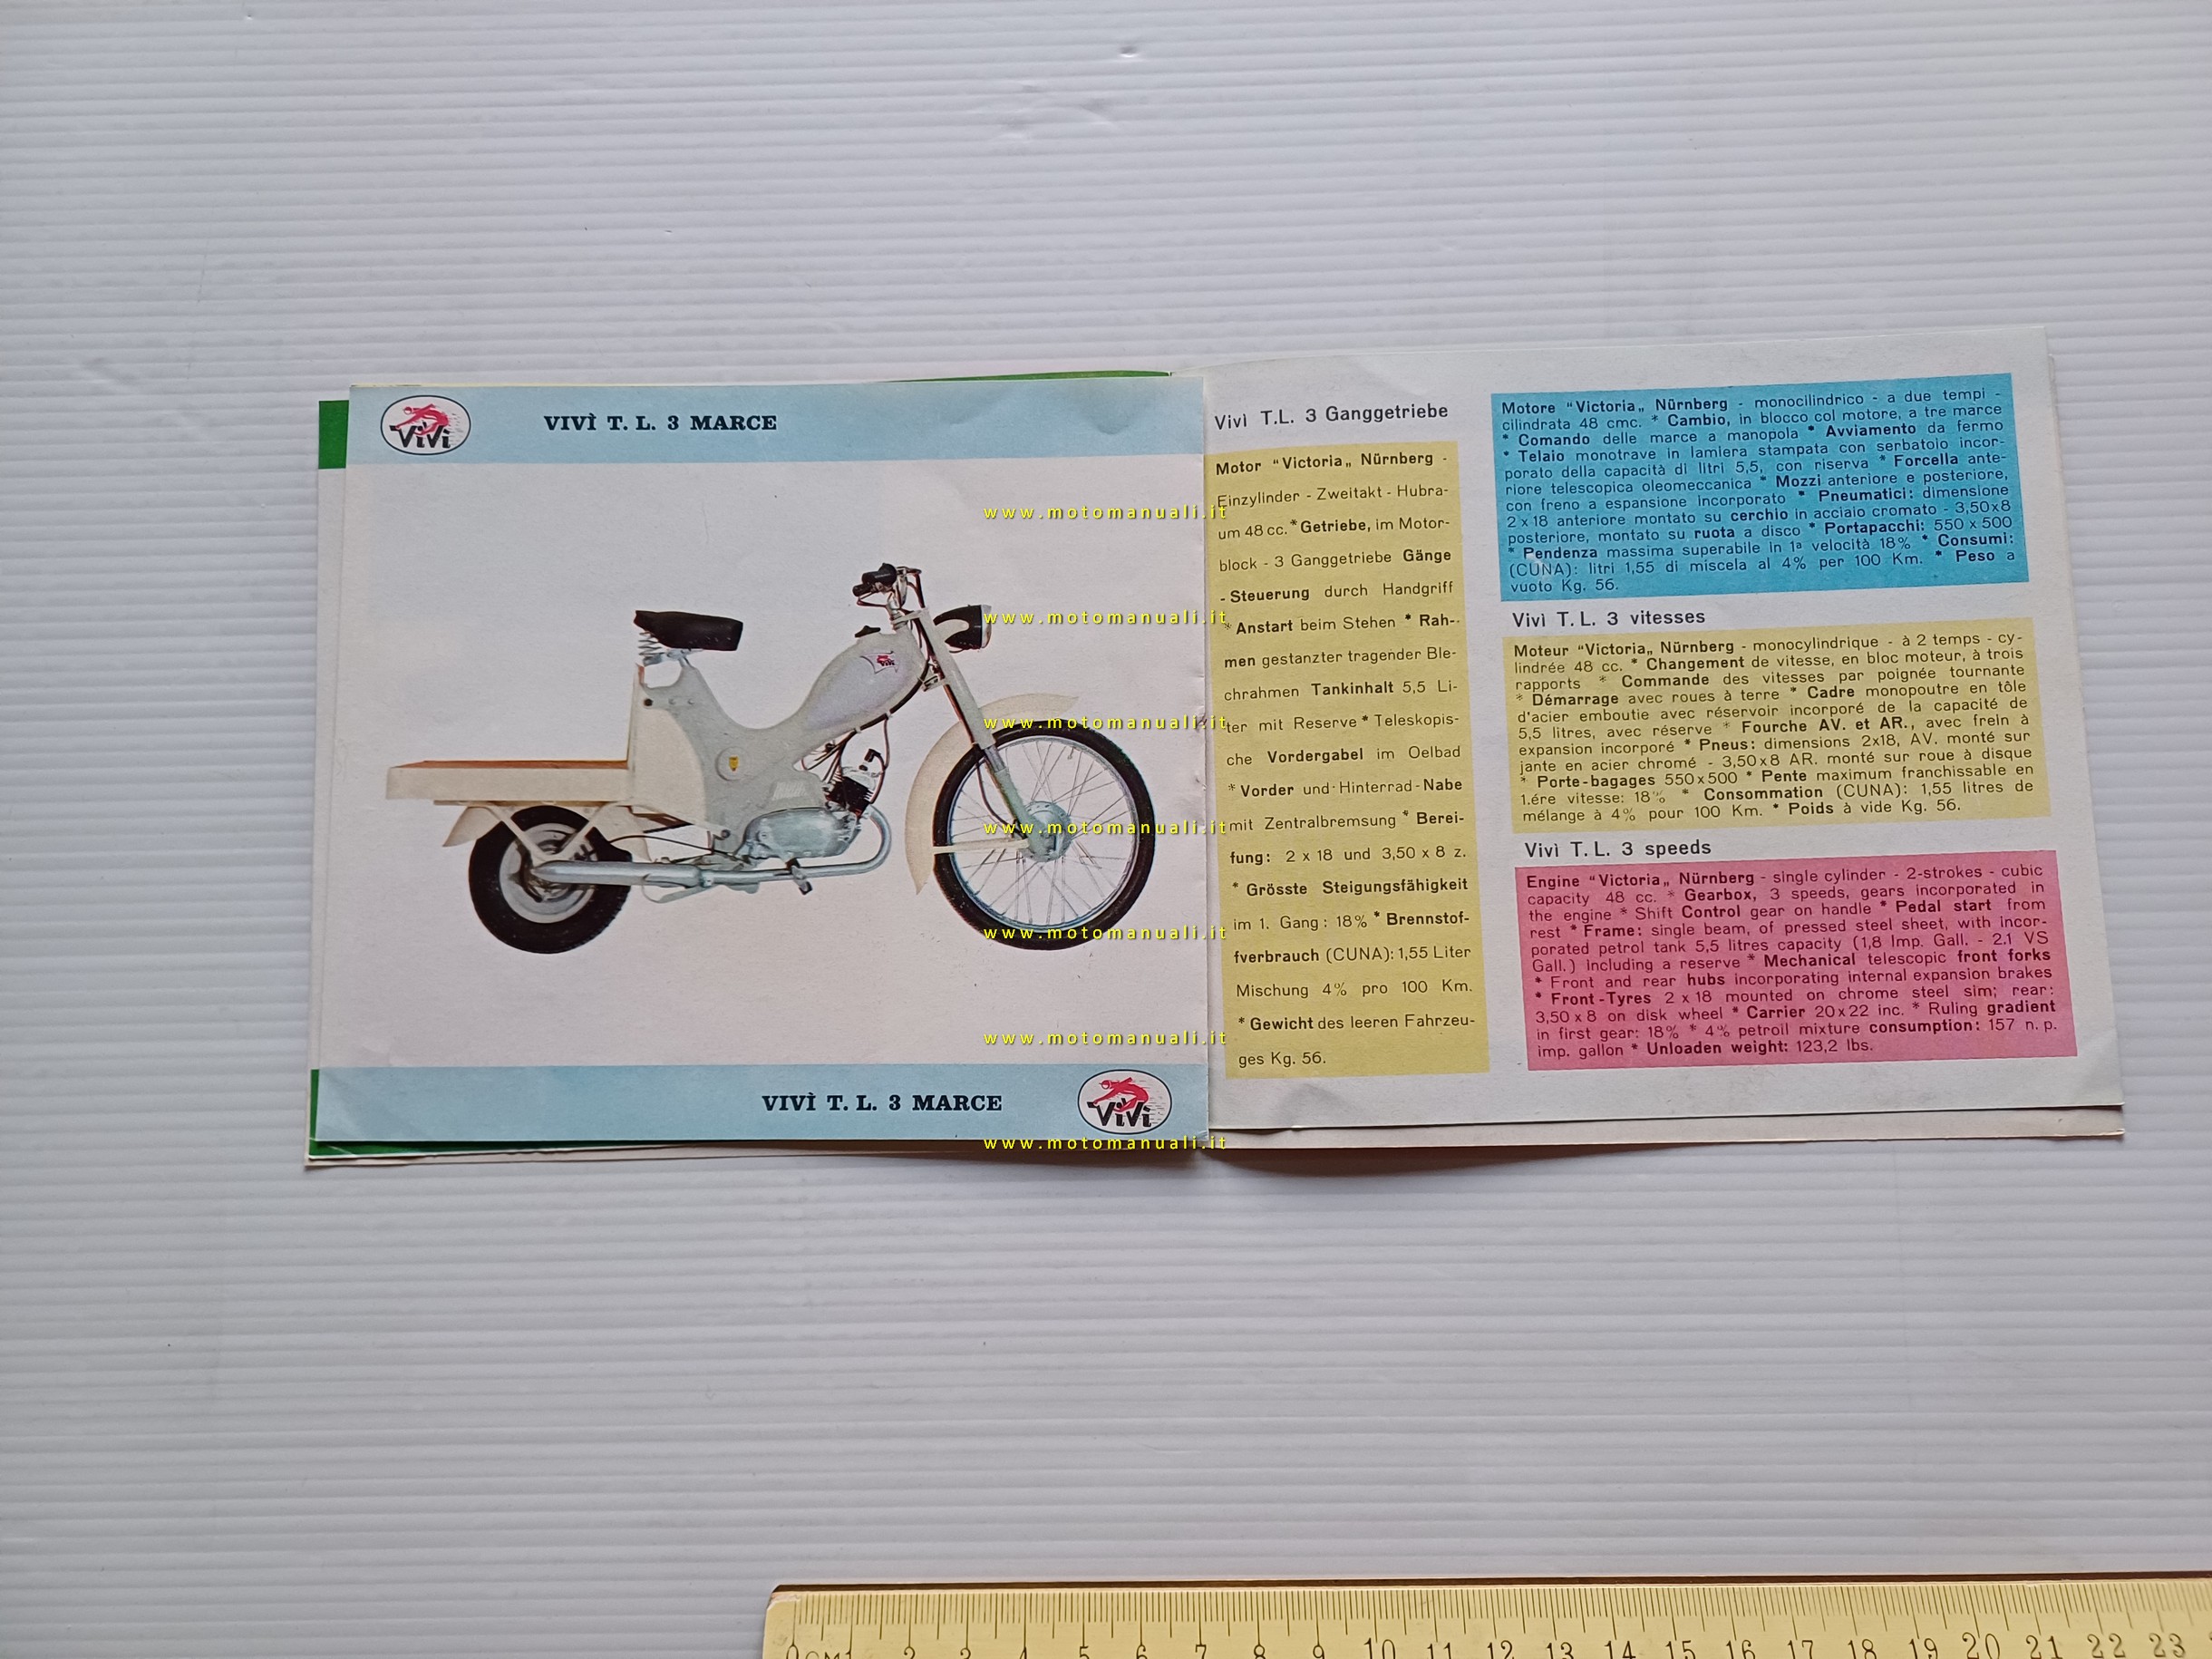 ViVi
VIVÌ T. L. 3 MARCE
ViVi
VIVÌ T. L. 3 MARCE
ViVi
www.motomanuali.it
www.motomanuali.it
www.motomanuali.it
www.motomanuali.it
www.motomanuali.it
www.motomanuali.it
www.motomanuali.it
Vivì T.L. 3 Ganggetriebe
Motor “Victoria„ Nürnberg -
Einzylinder - Zweitakt - Hubra-
um 48 cc. * Getriebe, im Motor-
block - 3 Ganggetriebe Gänge
- Steuerung durch Handgriff
* Anstart beim Stehen * Rah-
men gestanzter tragender Ble-
chrahmen Tankinhalt 5,5 Li-
ter mit Reserve * Teleskopis-
che Vordergabel im Oelbad
* Vorder und Hinterrad - Nabe
mit Zentralbremsung * Berei-
fung: 2 x 18 und 3,50 x 8 z.
* Grösste Steigungsfähigkeit
im 1. Gang: 18% * Brennstof-
fverbrauch (CUNA): 1,55 Liter
Mischung 4% pro 100 Km.
* Gewicht des leeren Fahrzeu-
ges Kg. 56.
Motore “Victoria„ Nürnberg - monocilindrico - a due tempi -
cilindrata 48 cmc. * Cambio, in blocco col motore, a tre marce
* Comando delle marce a manopola * Avviamento da fermo
* Telaio monotrave in lamiera stampata con serbatoio incor-
porato della capacità di litri 5,5, con riserva * Forcella ante-
riore telescopica oleomeccanica * Mozzi anteriore e posteriore,
con freno a espansione incorporato * Pneumatici: dimensione
2 x 18 anteriore montato su cerchio in acciaio cromato - 3,50x8
posteriore, montato su ruota a disco * Portapacchi: 550 x 500
* Pendenza massima superabile in 1ª velocità 18% * Consumi:
(CUNA): litri 1,55 di miscela al 4% per 100 Km. * Peso a
vuoto Kg. 56.
Vivì T. L. 3 vitesses
Moteur “Victoria„ Nürnberg - monocylindrique - à 2 temps - cy-
lindrée 48 cc. * Changement de vitesse, en bloc moteur, à trois
rapports * Commande des vitesses par poignée tournante
* Démarrage avec roues à terre * Cadre monopoutre en tôle
d'acier emboutie avec réservoir incorporé de la capacité de
5,5 litres, avec réserve * Fourche AV. et AR., avec frein à
expansion incorporé * Pneus: dimensions 2x18, AV. monté sur
jante en acier chromé - 3,50x8 AR. monté sur roue à disque
* Porte-bagages 550x500 * Pente maximum franchissable en
1.ére vitesse: 18% * Consommation (CUNA): 1,55 litres de
mélange à 4% pour 100 Km. * Poids à vide Kg. 56.
Vivì T. L. 3 speeds
Engine “Victoria„ Nürnberg - single cylinder - 2-strokes - cubic
capacity 48 cc. * Gearbox, 3 speeds, gears incorporated in
the engine * Shift Control gear on handle * Pedal start from
rest * Frame: single beam, of pressed steel sheet, with incor-
porated petrol tank 5,5 litres capacity (1,8 Imp. Gall. - 2.1 VS
Gall.) Including a reserve * Mechanical telescopic front forks
* Front and rear hubs incorporating internal expansion brakes
* Front-Tyres 2 x 18 mounted on chrome steel sim; rear:
3,50 x 8 on disk wheel * Carrier 20x22 inc. * Ruling gradient
in first gear: 18% * 4% petroil mixture consumption: 157 n. p.
imp. gallon * Unloaden weight: 123,2 lbs.
0 CM 1 2 3 4 5 6 7 8 9 10 11 12 13 14 15 16 17 18 19 20 21 22 23